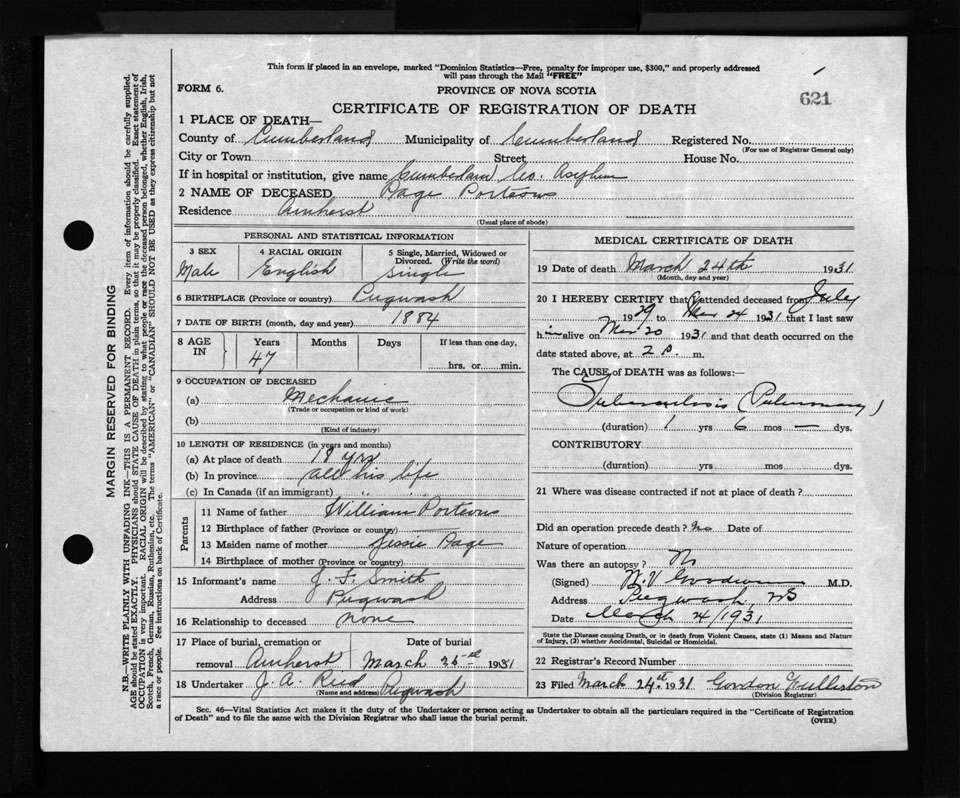 This form if placed in an envelope, marked "Dominion Statistics—Free, penalty for improper use, $300," and properly addressed
will pass through the Mail "FREE"
FORM 6.
PROVINCE OF NOVA SCOTIA
621
CERTIFICATE OF REGISTRATION OF DEATH
1 PLACE OF DEATH—
County of Cumberland Municipality of Cumberland Registered No.
(For use of Registrar General only)
City or Town Street House No.
If in hospital or institution, give name Cumberlan Co. Asylum
2 NAME OF DECEASED Page Porteous
Residence Amherst
(Usual place of abode)
PERSONAL AND STATISTICAL INFORMATION
3 SEX 4 RACIAL ORIGIN 5 Single, Married, Widowed or
Divorced. (Write the word)
Male English Single
6 BIRTHPLACE (Province or country) Pugwash
7 DATE OF BIRTH (month, day and year) 1884
8 AGE IN Years Months Days If less than one day,
47 hrs. or min.
9 OCCUPATION OF DECEASED
(a) Mechanic
(Trade or occupation or kind of work)
(b)
(Kind of industry)
10 LENGTH OF RESIDENCE (in years and months)
(a) At place of death 18 yrs
(b) In province all his life
(c) In Canada (if an immigrant) " "
Parents
11 Name of father William Porteous
12 Birthplace of father (Province or country)
13 Maiden name of mother Jessie Page
14 Birthplace of mother (Province or country)
15 Informant's name J. F. Smith
Address Pugwash
16 Relationship to deceased none
17 Place of burial, cremation or Date of burial
removal Amherst March 26th 1931
18 Undertaker J. A. Reid Pugwash
(Name and address)
MEDICAL CERTIFICATE OF DEATH
19 Date of death March 24th 1931
(Month, day and year)
20 I HEREBY CERTIFY that I attended deceased from July
1929 to Mar 24 1931 that I last saw
him alive on Mar 20 1931 and that death occurred on the
date stated above, at 2 p. m.
The CAUSE of DEATH was as follows:
Tuberculosis (Pulmonary)
(duration) 1 yrs 6 mos — dys.
CONTRIBUTORY
(duration) yrs mos dys.
21 Where was disease contracted if not at place of death?
Did an operation precede death? No Date of
Nature of operation
Was there an autopsy? No
(Signed) Goodwin M.D.
Address Pugwash, NS
Date 1931
State the Disease causing Death, or in death from Violent Causes, state (1) Means and Nature
of Injury, (2) whether Accidental, Suicidal or Homicidal.
22 Registrar's Record Number
23 Filed March 24th 1931 Gordon
(Division Registrar)
Sec. 46—Vital Statistics Act makes it the duty of the Undertaker or person acting as Undertaker to obtain all the particulars required in the "Certificate of Registration
of Death" and to file the same with the Division Registrar who shall issue the burial permit.
(OVER)
MARGIN RESERVED FOR BINDING
N.B.—WRITE PLAINLY WITH UNFADING INK—THIS IS A PERMANENT RECORD. Every item of information should be carefully supplied.
AGE should be stated EXACTLY. PHYSICIANS should STATE CAUSE OF DEATH in plain terms, so that it may be properly classified. Exact statement of
OCCUPATION is very important. RACIAL ORIGIN will be described by stating to what people or race the deceased person belonged, whether English, Irish,
Scotch, French, German, Russian, Ruthenian, etc. The terms "AMERICAN" or "CANADIAN" SHOULD NOT BE USED as they express citizenship but not
a race or people. See instructions on back of Certificate.